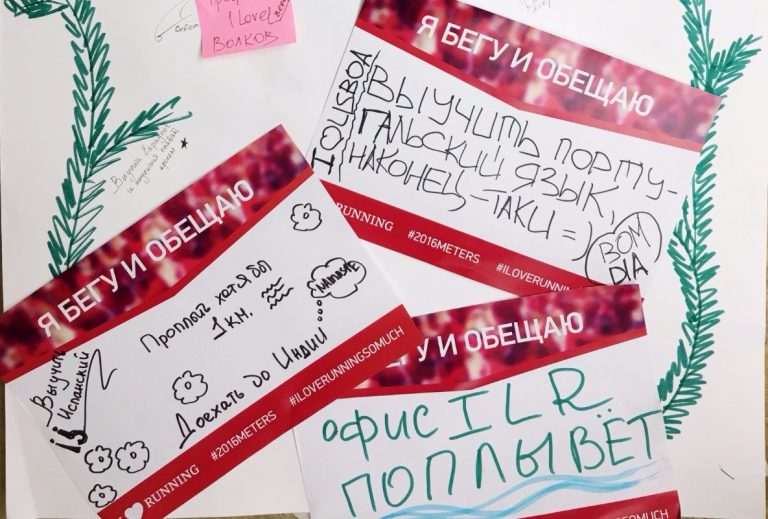 1 Love
ВОЛКОВ
Я БЕГУ И ОБЕЩАЮ
I ♡ LISBOA
ВЫУЧИТЬ ПОРТУ-
ГАЛЬСКИЙ ЯЗЫК,
НАКОНЕЦ-ТАКИ =)
BOM
DIA
RUNNING #2016METERS #ILOVERUNNIN
Я БЕГУ И ОБЕЩАЮ
Проплыть хотя бы
1 км.
Доехать до Индии
NAMASTE
Выучить
Испанский
I ♥ RUNNING #2016METERS #ILOVERUNNINGSOMUCH
ГУ И ОБЕЩАЮ
ОФИС ILR
ПОПЛЫВЁТ
SOMUCH